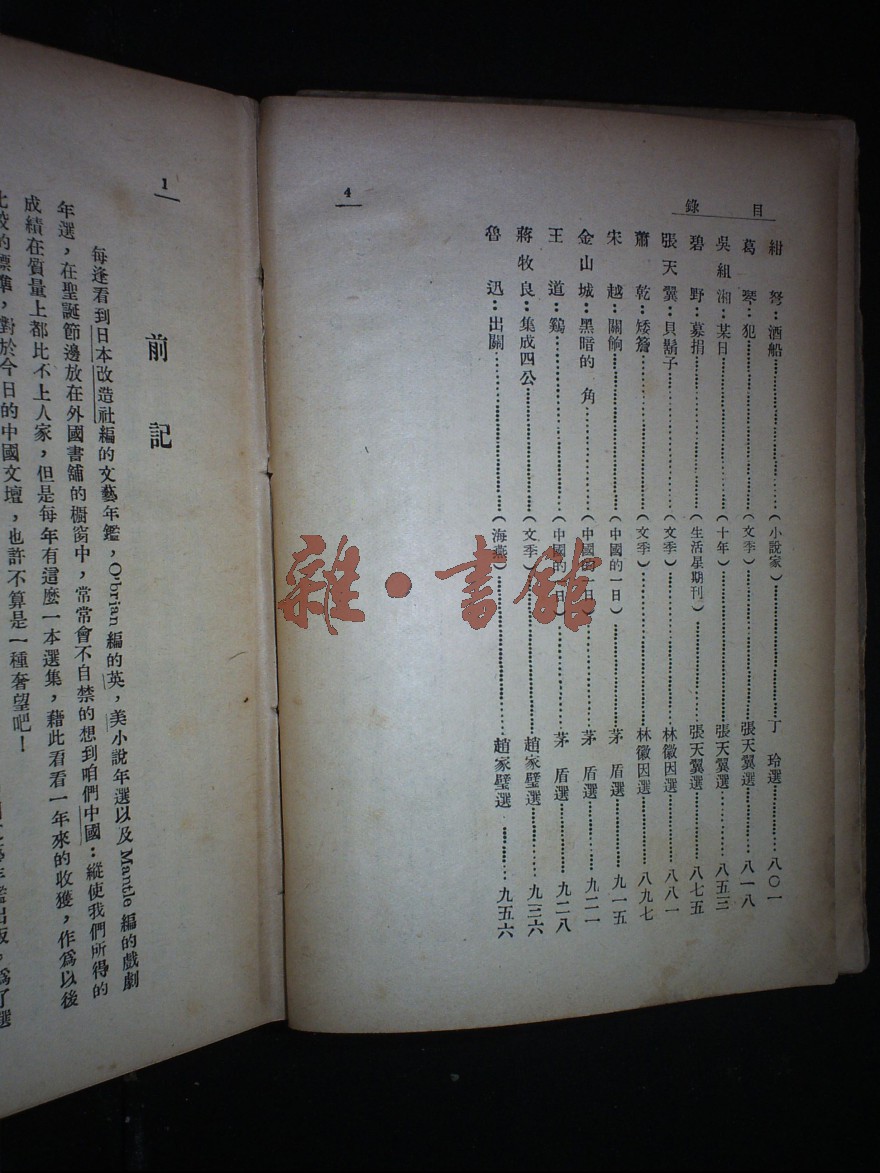 目錄
4
紺弩：酒船……（小說家）……丁玲選……八〇一
葛琴：犯……（文季）……張天翼選……八一八
吳組湘：某日……（十年）……張天翼選……八五三
碧野：募捐……（生活星期刊）……張天翼選……八七五
張天翼：貝鬍子……（文季）……林徽因選……八八一
蕭乾：矮簷……（文季）……林徽因選……八九七
宋越：關餉……（中國的一日）……茅盾選……九一五
金山城：黑暗的 角……（中國的一日）……茅盾選……九二一
王道：鷄……（中國的一日）……茅盾選……九二八
蔣牧良：集成四公……（文季）……趙家璧選……九三六
魯迅：出關……（海燕）……趙家璧選……九五六
1
前記
每逢看到日本改造社編的文藝年鑑，O'brian 編的英，美小說年選以及 Mantle 編的戲劇
年選，在聖誕節邊放在外國書舖的櫥窗中，常常會不自禁的想到咱們中國：縱使我們所得的
成績在質量上都比不上人家，但是每年有這麼一本選集，藉此看看一年來的收獲，作爲以後
比較的標準，對於今日的中國文壇，也許不算是一種奢望吧！
年鑑出版。爲了選
雜·書館